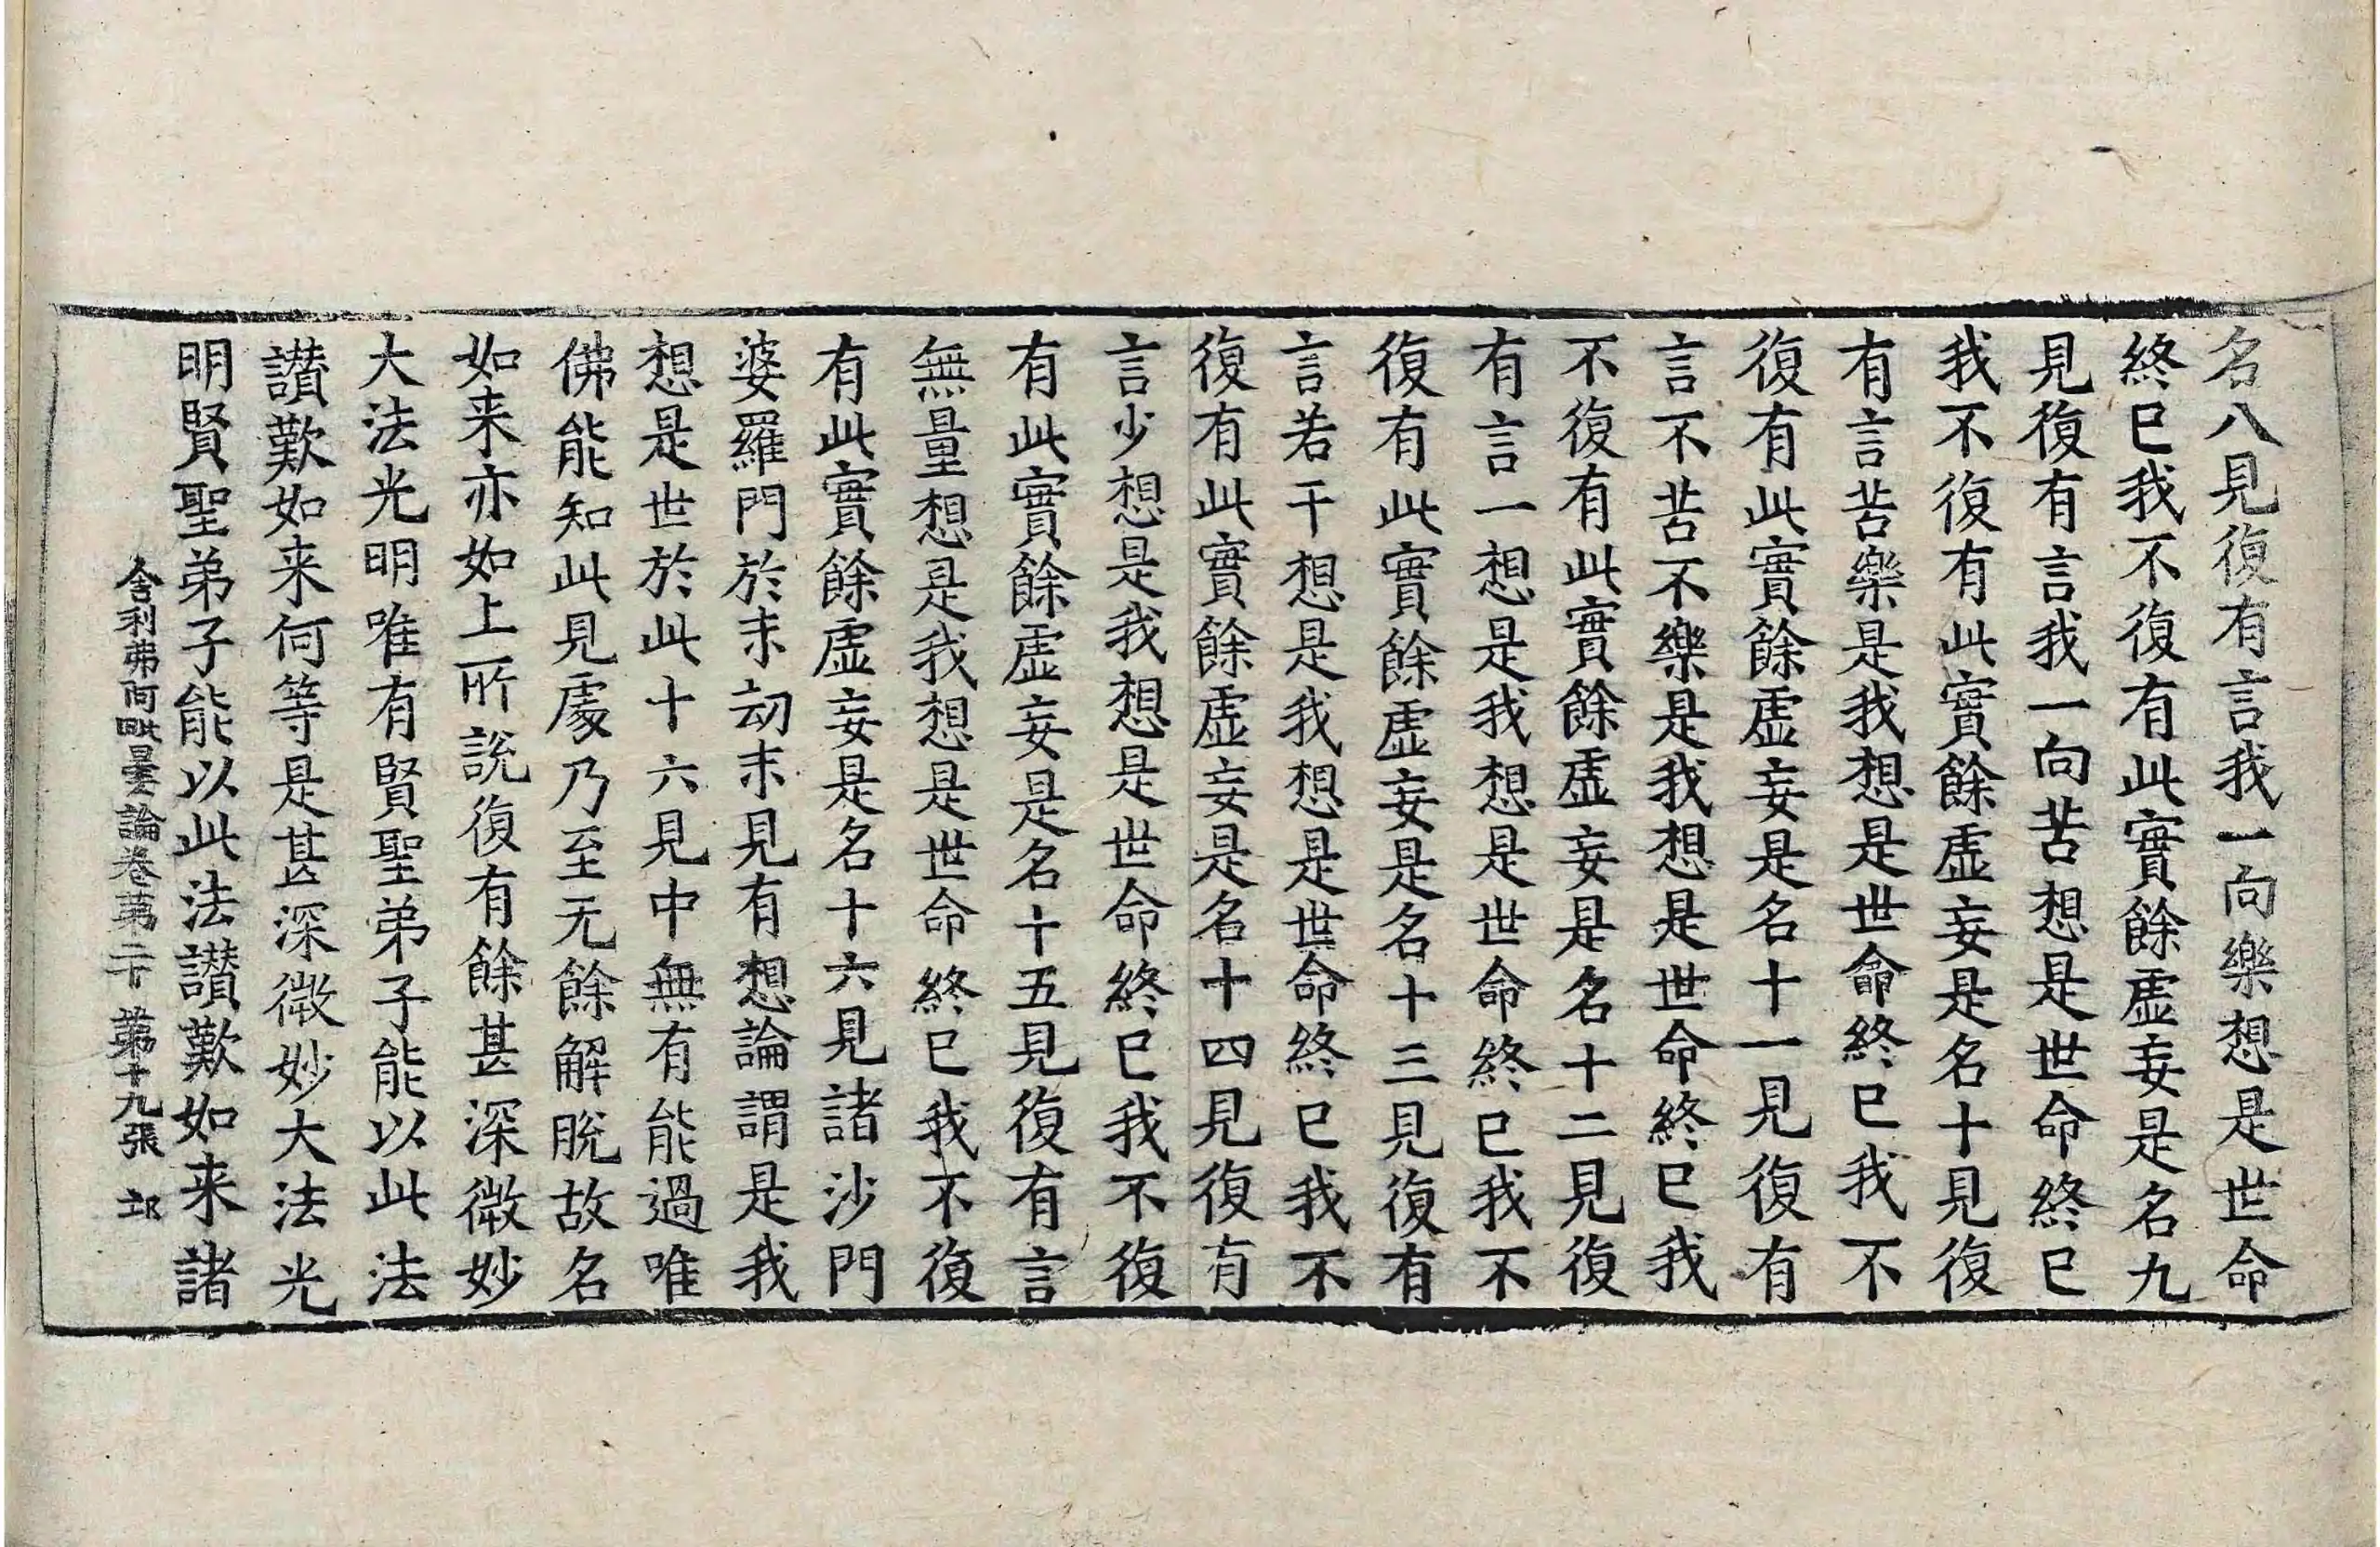 名八見復有言我一向樂想是世命
終已我不復有此實餘虛妄是名九
見復有言我一向苦想是世命終已
我不復有此實餘虛妄是名十見復
有言苦樂是我想是世命終已我不
復有此實餘虛妄是名十一見復有
言不苦不樂是我想是世命終已我
不復有此實餘虛妄是名十二見復
有言一想是我想是世命終已我不
復有此實餘虛妄是名十三見復有
言若干想是我想是世命終已我不
復有此實餘虛妄是名十四見復有
言少想是我想是世命終已我不復
有此實餘虛妄是名十五見復有言
無量想是我想是世命終已我不復
有此實餘虛妄是名十六見諸沙門
婆羅門於末劫末見有想論謂是我
想是世於此十六見中無有能過唯
佛能知此見處乃至无餘解脫故名
如来亦如上所說復有餘甚深微妙
大法光明唯有賢聖弟子能以此法
讃歎如来何等是甚深微妙大法光
明賢聖弟子能以此法讃歎如来諸
舍利弗阿毗曇論卷第二十 第十九張